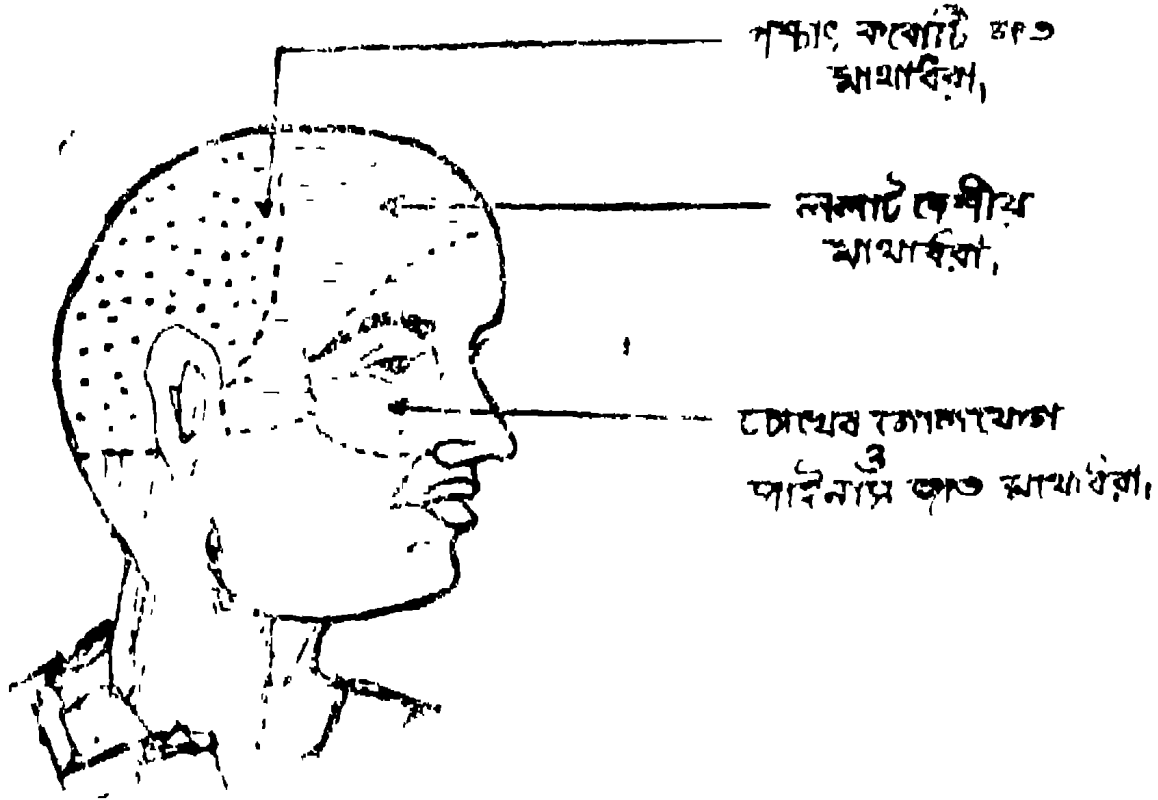 পশ্চাৎ করোটি
মাথাধরা,
ললাট দেশীয়
মাথাধরা,
চোখের গোলযোগ
ও
সাইনাস জাত মাথাধরা,